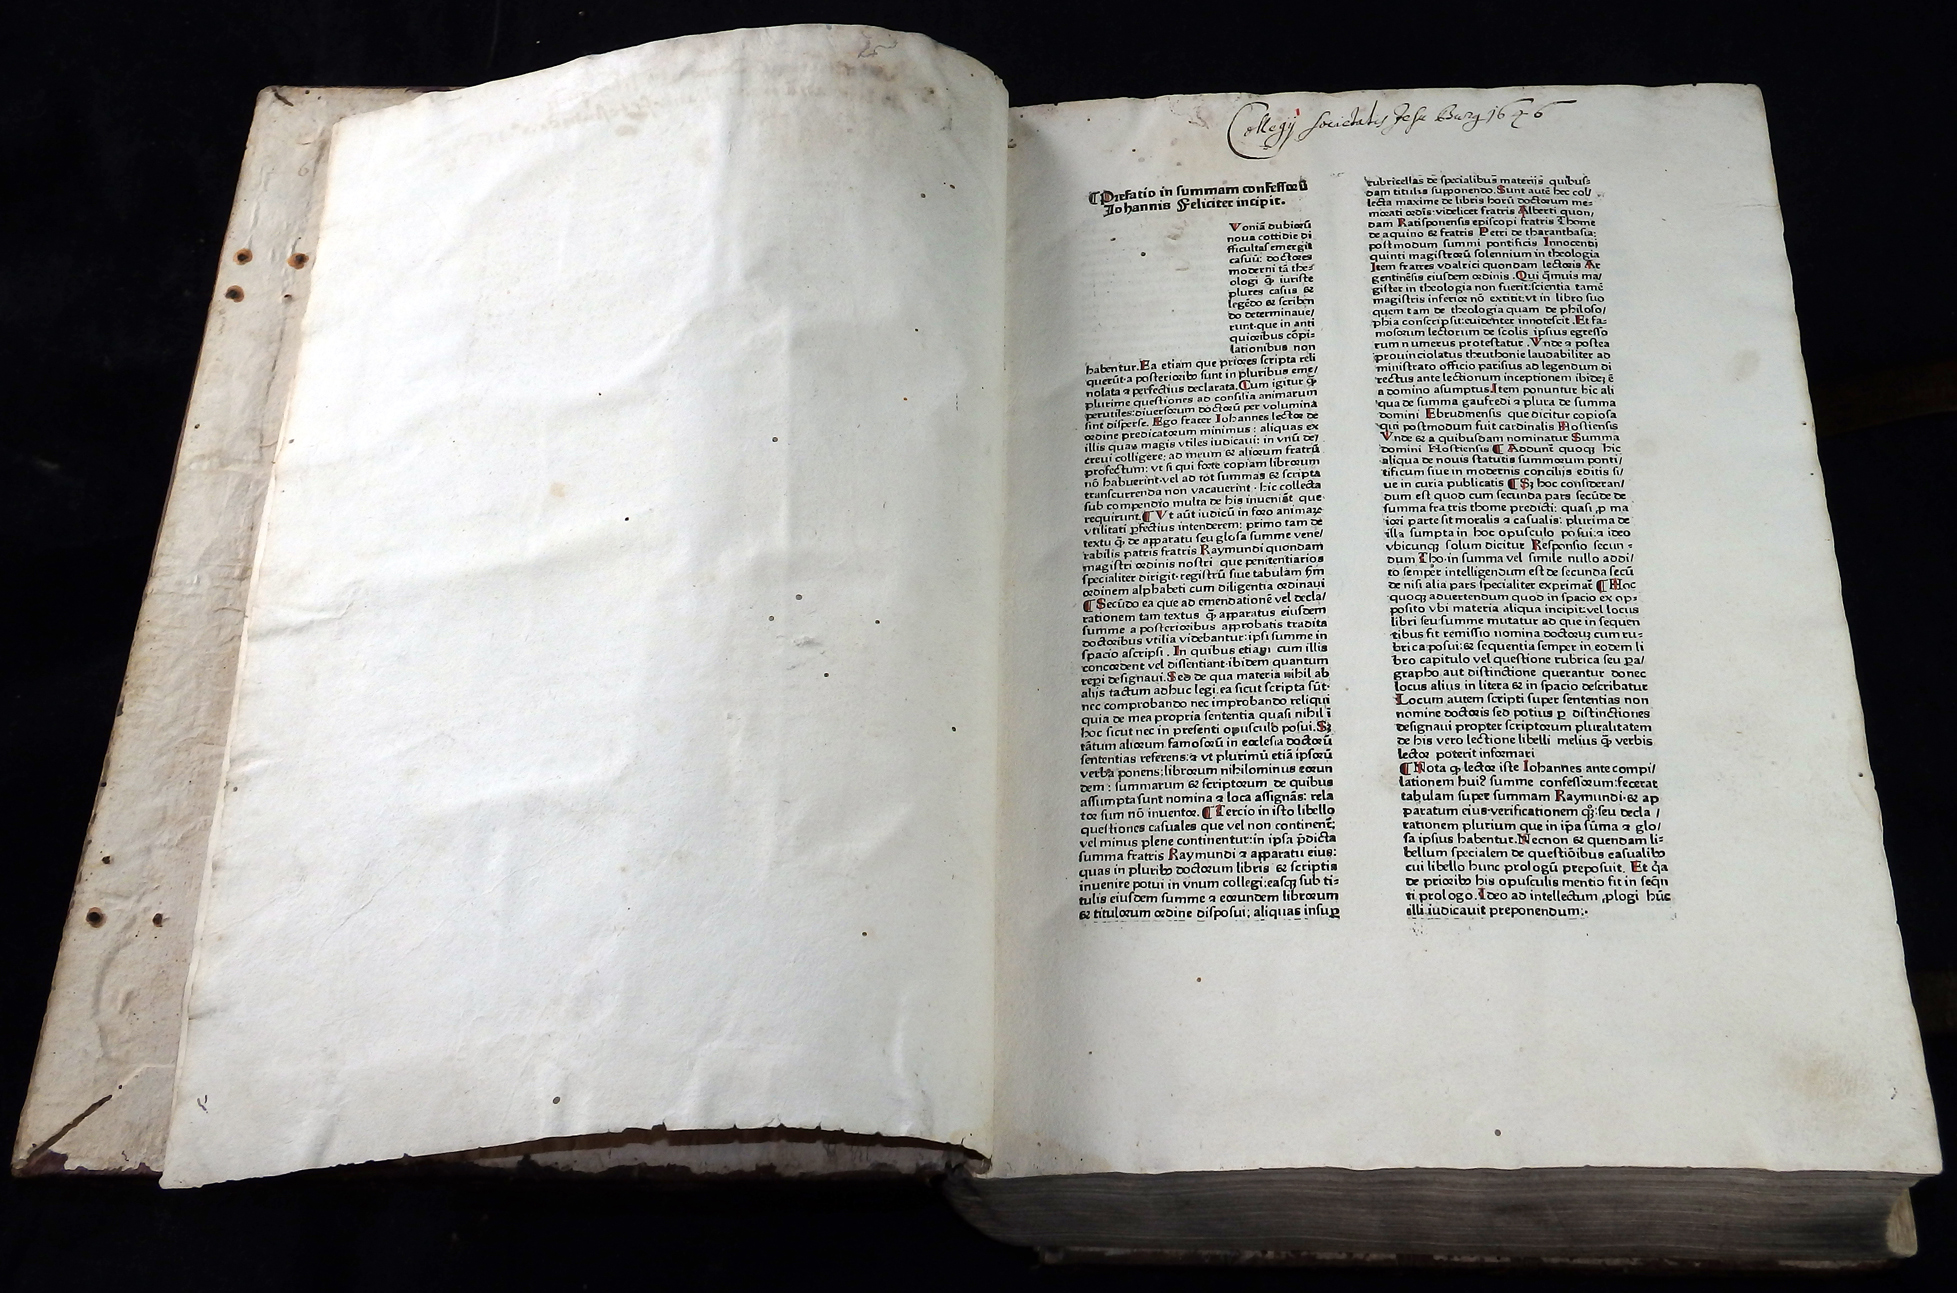 Collegij Societatis Jesu Burg 1646
¶Prefatio in summam confessoꝝ
Johannis Feliciter incipit.
Voniā dubioꝝ
noua cottidie di
fficultas emergit
casuū: doctores
moderni tā the⸗
ologi ꝙ̄ iuriste
plures casus &
legēdo & scriben
do determinaue/
runt·que in anti
quioribus cōpi
lationibus non
habentur. Ea etiam que priores scripta reli
querūt·a posterioribꝰ sunt in pluribus eme/
nolata ⁊ perfectius declarata. Cum igitur ꝙ̄
plurime questiones ad consilia animarum
perutiles: diuersorum doctoꝝ per volumina
sint disperse. Ego frater Johannes lector de
ordine predicatorum minimus: aliquas ex
illis quas magis vtiles iudicaui: in vnū de/
creui colligere: ad meum & aliorum fratrū
profectum: vt si qui forte copiam librorum
nō habuerint·vel ad tot summas & scripta
transcurrenda non vacauerint · hic collecta
sub compendio multa de his inueniāt que
requirunt. ¶Vt aūt iudiciū in foro animaꝝ
vtilitati ꝑfectius intenderem: primo tam de
textu ꝙ̄ de apparatu seu glosa summe vene/
rabilis patris fratris Raymundi quondam
magistri ordinis nostri que penitentiarios
specialiter dirigit·registrū siue tabulam ẜm
ordinem alphabeti cum diligentia ordinaui
¶Secūdo ea que ad emendationē vel decla/
rationem tam textus ꝙ̄ apparatus eiusdem
summe a posterioribus approbatis tradita
doctoribus vtilia videbantur: ipsi summe in
spacio ascripsi . In quibus etiam cum illis
concordent vel dissentiant·ibidem quantum
reperi designaui. Sed de qua materia nihil ab
alijs tactum adhuc legi·ea sicut scripta sūt·
nec comprobando nec improbando reliqui
quia de mea propria sententia quasi nihil ī
hoc sicut nec in presenti opusculo posui. Sꝫ
tātum aliorum famosoꝝ in ecclesia doctoꝝ
sententias referens: ⁊ vt plurimū etiā ipsoꝝ
verba ponens: librorum nihilominus eorun
dem : summarum & scriptorum de quibus
assumpta sunt nomina ⁊ loca assignās: rela
tor sum nō inuentor. ¶Tercio in isto libello
questiones casuales que vel non continent̄;
vel minus plene continentur: in ipsa p̄dicta
summa fratris Raymundi ⁊ apparatu eius:
quas in pluribꝰ doctorum libris & scriptis
inuenire potui in vnum collegi: easqꝫ sub ti⸗
tulis eiusdem summe ⁊ eorundem librorum
& titulorum ordine disposui; aliquas insuꝑ
rubricellas de specialibus materijs quibus⸗
dam titulis supponendo. Sunt autē hec col/
lecta maxime de libris horū doctorum me⸗
morati ordīs·videlicet fratris Alberti quon/
dam Ratisponensis episcopi fratris Thome
de aquino & fratris Petri de tharanthasia;
postmodum summi pontificis Innocenti
quinti magistroꝝ solennium in theologia
Item fratres vdalrici quondam lectoris Ar
gentinēsis eiusdem ordinis . Qui q̄muis ma/
gister in theologia non fuerit: scientia tamē
magistris inferior nō extitit: vt in libro suo
quem tam de theologia quam de philoso/
phia conscripsit: euidenter innotescit . Et fa⸗
mosorum lectorum de scolis ipsius egresso
rum numerus protestatur . Vnde ⁊ postea
prouinciolatus theuthonie laudabiliter ad
ministrato officio parisius ad legendum di
rectus ante lectionum inceptionem ibidē ē
a domino asumptus. Item ponuntur hic ali
qua de summa gaufredi ⁊ plura de summa
domini Ebrudmensis que dicitur copiosa
qui postmodum fuit cardinalis Hostiensis
Vnde & a quibusdam nominatur Summa
domini Hostiensis ¶ Addunt̄ quoqꝫ hic
aliqua de nouis statutis summorum ponti/
tificum siue in modernis concilijs editis si/
ue in curia publicatis ¶ Sꝫ hoc consideran/
dum est quod cum secunda pars secūde de
summa fratris thome predicti: quasi ꝓ ma
iori parte sit moralis ⁊ casualis: plurima de
illa sumpta in hoc opusculo posui: ⁊ ideo
vbicunqꝫ solum dicitur Responsio secun ⸗
dum Tho·in summa vel simile nullo addi/
to semper intelligendum est de secunda secū
de nisi alia pars specialiter exprimat̄ ¶ Hoc
quoqꝫ aduertendum quod in spacio ex op⸗
posito vbi materia aliqua incipit: vel locus
libri seu summe mutatur ad que in sequen
tibus fit remissio nomina doctorum cum ru⸗
brica posui: & sequentia semper in eodem li
bro capitulo vel questione rubrica seu pa/
grapho aut distinctione querantur donec
locus alius in litera & in spacio describatur
Locum autem scripti super sententias non
nomine doctoris sed potius ꝑ distinctiones
designaui propter scriptorum pluralitatem
de his vero lectione libelli melius ꝙ̄ verbis
lector poterit informari
¶Nota ꝙ lector iste Johannes ante compi/
lationem huiꝰ summe confessorum: fecerat
tabulam super summam Raymundi·& ap
paratum eius·verificationem qꝫ: seu decla /
rationem plurium que in ipsa sūma ⁊ glo/
sa ipsius habentur. Necnon & quendam li⸗
bellum specialem de questiōibus casualibꝰ
cui libello hunc prologū preposuit. Et q̄a
de prioribꝰ his opusculis mentio fit in seq̄n
ti prologo. Ideo ad intellectum ꝓlogi huc
illi iudicauit preponendum:·